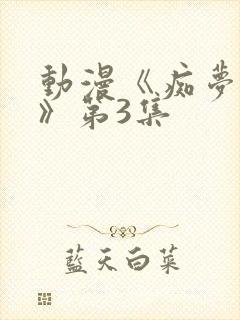 動漫《痴夢
》第3集
藍天白菜